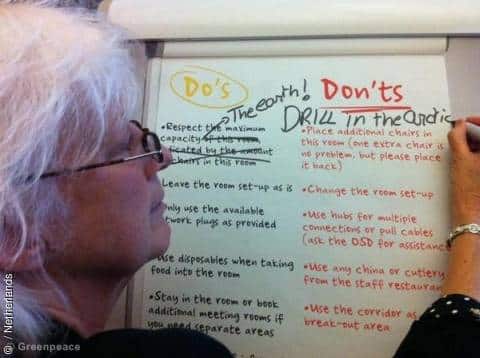 Do's
The earth!
•Respect the maximum
capacity of this room,
by the amount
chairs in this room
Leave the room set-up as is
Only use the available
twork plugs as provided
Use disposables when taking
food into the room
•Stay in the room or book
additional meeting rooms if
you need separate areas
Don'ts
DRILL in the arctic
•Place additional chairs in
this room (one extra chair is
no problem, but please place
it back)
•Change the room set-up
•Use hubs for multiple
connections or pull cables
(ask the OSD for assistance
•Use any china or cutlery
from the staff restaurant
•Use the corridor as
break-out area
© / Netherlands
© Greenpeace